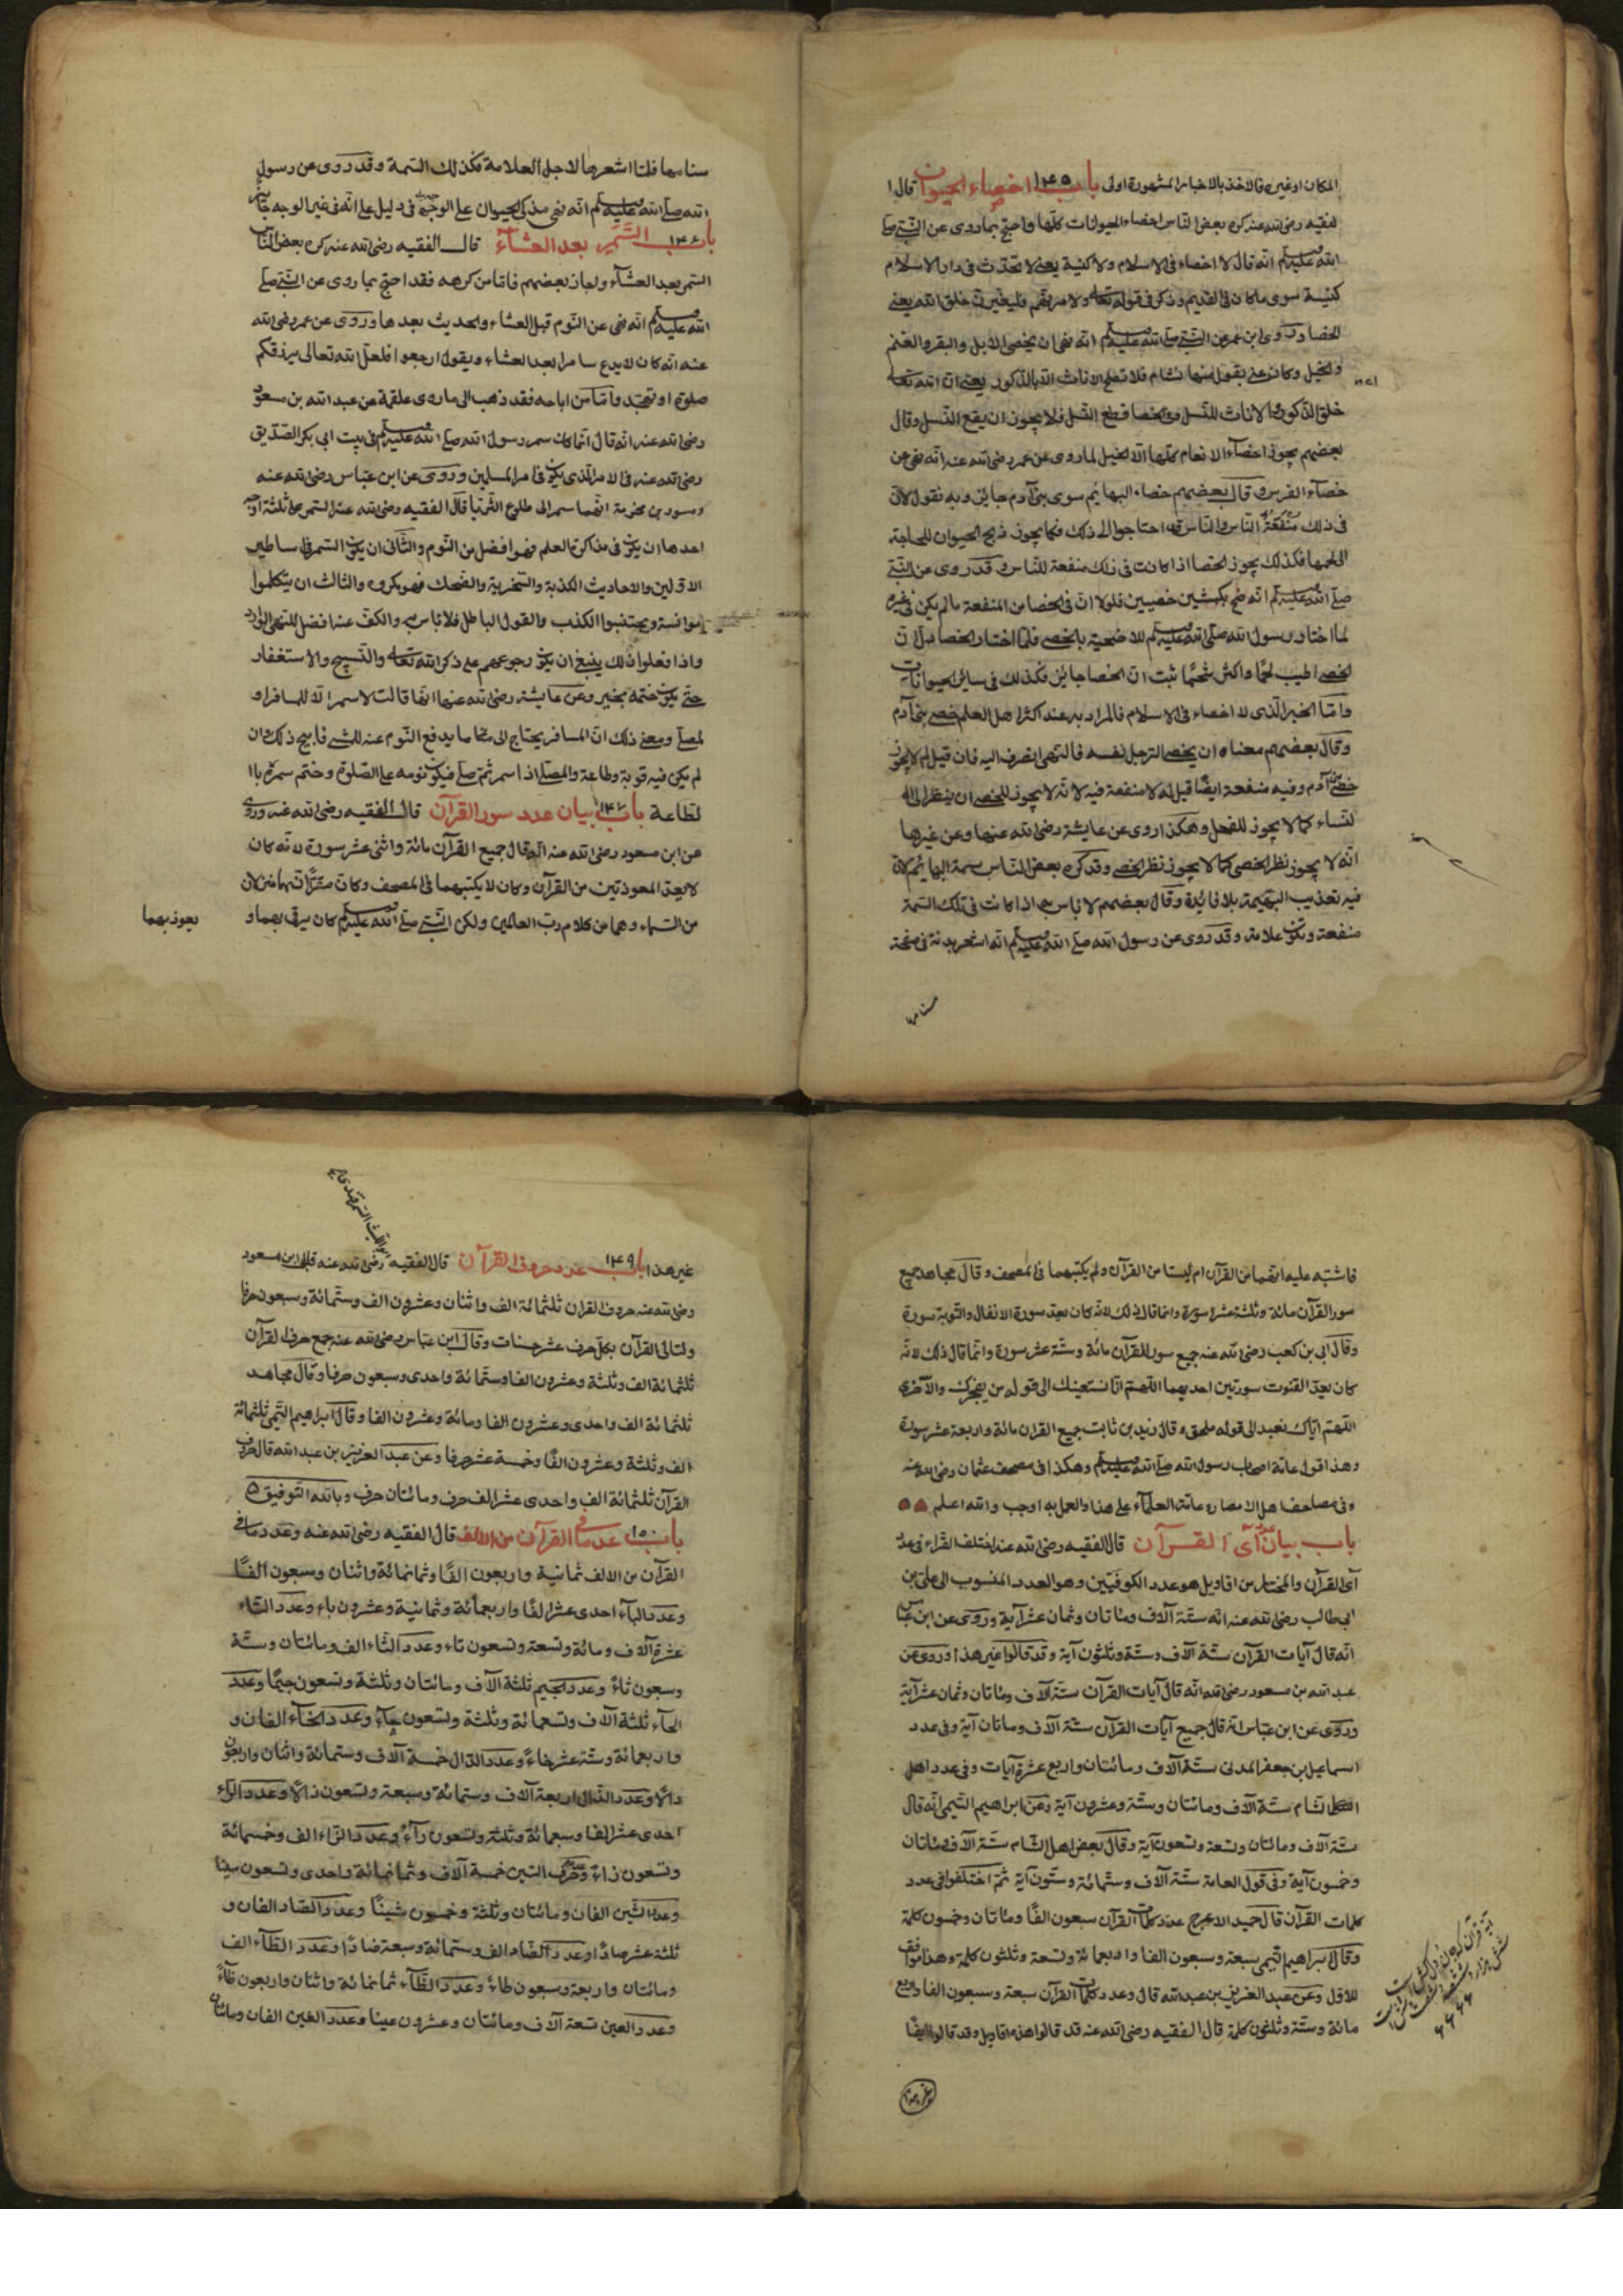 المكان او غيره فالاخذ بالاخبار المشهورة اولى باب ١٤٥ اخصاء الحيوان قال ا
لفقيه رضى الله عنه كره بعض الناس اخصاء الحيوانات كلها واحتج بما روى عن النبي صلى
الله عليه وسلم انه قال لا اخصاء فى الاسلام ولا كنيسة يعنى لا تحدث فى دار الاسلام
كنيسة سوى ما كان فى القديم وذكر فى قوله تعالى ولامرنهم فليغيرن خلق الله يعنى
الخصا وروى ابن عمر عن النبي صلى الله عليه وسلم انه نهى ان يخصى الابل والبقر والغنم
والخيل وكان على يقول منها نشام فلا تصلح الاناث الا بالذكور يعنى ان الله تعالى
خلق الذكور والاناث للنسل وفى الخصا قطع النسل فلا يجوز ان يقع النسل وقال
بعضهم يجوز اخصاء الانعام كلها الا الخيل لما روى عن عمر رضى الله عنه انه نهى عن
خصاء الفرس وقال بعضهم خصاء البهايم سوى بنى آدم جايز وبه نقول لان
فى ذلك منفعة الناس والناس قد احتاجوا الى ذلك فكما يجوز ذبح الحيوان للحاجة
الى لحمها فكذلك يجوز الخصا اذا كانت فى ذلك منفعة للناس وقد روى عن النبي
صلى الله عليه وسلم انه ضحى بكبشين خصيين فلولا ان فى الخصا من المنفعة ما لم يكن فى غيره
لما اختار رسول الله صلى الله عليه وسلم للاضحية بالخصى فلما اختار الخصا دل ان
الخصى اطيب لحما واكثر شحما ثبت ان الخصا جايز فكذلك فى ساير الحيوانات
واما الخبر الذى لا اخصاء فى الاسلام فالمراد به عند اكثر اهل العلم خصى بنى آدم
وقال بعضهم معناه ان يخصى الرجل نفسه فالنهى انصرف اليه فان قيل لم لا يجوز
خصى بنى آدم وفيه منفعة ايضا قيل له لا منفعة فيه لانه لا يجوز للخصى ان ينظر الى ا
لنساء كما لا يجوز للفحل وهكذا روى عن عايشة رضى الله عنها وعن غيرها
انه لا يجوز نظر الخصى كما لا يجوز نظر الخصى وقد كره بعض الناس سمة البهايم لان
فيه تعذيب البهيمة بلا فايدة وقال بعضهم لا باس به اذا كانت فى تلك السمة
منفعة وتكون علامة وقد روى عن رسول الله صلى الله عليه وسلم انه اشعر بدنة فى صفحة
سنامها
سنامها فلما اشعرها لاجل العلامة فكذلك السمة وقد روى عن رسول
الله صلى الله عليه وسلم انه نهى من كى الحيوان على الوجه فى دليل على انه فى غير الوجه جايز
باب ١٤٦ السمر بعد العشاء قال الفقيه رضى الله عنه كره بعض الناس
السمر بعد العشاء واجاز بعضهم فاما من كرهه فقد احتج بما روى عن النبي صلى
الله عليه وسلم انه نهى عن النوم قبل العشاء والحديث بعدها وروى عن عمر رضى الله
عنه انه كان لا يدع سامرا بعد العشاء ويقول ارجعوا فلعل الله تعالى يرزقكم
صلوة او تهجد واما من اباحه فقد ذهب الى ما روى علقمة عن عبد الله بن مسعود
رضى الله عنه انه قال انما كان سمر رسول الله صلى الله عليه وسلم فى بيت ابى بكر الصديق
رضى الله عنه فى الامر الذى يكون فى امر المسلمين وروى عن ابن عباس رضى الله عنه
ومسور بن مخرمة انهما سمرا الى طلوع الثريا قال الفقيه رضى الله عنه السمر على ثلثة اوجه
احدها ان يكون فى مذاكرة العلم فهو افضل من النوم والثانى ان يكون السمر فى اساطير
الاولين والاحاديث الكذبة والسخرية والضحك فهو مكروه والثالث ان يتكلموا
موانسة ويجتنبوا الكذب والقول الباطل فلا باس به والكف عنه افضل للنهى الوارد
واذا فعلوا ذلك ينبغى ان يكون رجوعهم على ذكر الله تعالى والتسبيح والاستغفار
حتى يكون ختمه بخير وعن عايشة رضى الله عنها انها قالت لا سمر الا للمسافر او
لمصلى ومعنى ذلك ان المسافر يحتاج الى ما يدفع النوم عنه للمشى فابيح ذلك وان
لم يكن فيه قربة وطاعة والمصلى اذا سمر ثم صلى فيكون نومه على الصلوة وختم سمره با
لطاعة باب ١٤٧ بيان عدد سور القرآن قال الفقيه رضى الله عنه وروى
عن ابن مسعود رضى الله عنه انه قال جميع القرآن مائة واثنى عشر سورة لانه كان
لا يعد المعوذتين من القرآن وكان لا يكتبهما فى المصحف وكان مقرا انهما منزلان
من السماء وهما من كلام رب العالمين ولكن النبي صلى الله عليه وسلم كان يرقى بهما و
يعوذ بهما
فاشتبه عليه انهما من القرآن ام ليستا من القرآن ولم يكتبهما فى المصحف وقال مجاهد جميع
سور القرآن مائة وثلثة عشر سورة وانما قال ذلك لانه كان يعد سورة الانفال والتوبة سورة
وقال ابى بن كعب رضى الله عنه جميع سور القرآن مائة وستة عشر سورة وانما قال ذلك لانه
كان يعد القنوت سورتين احديهما اللهم انا نستعينك الى قوله من يفجرك والاخرى
اللهم اياك نعبد الى قوله ملحق وقال زيد بن ثابت جميع القران مائة واربعة عشر سورة
وهذا قول عامة اصحاب رسول الله صلى الله عليه وسلم وهكذا فى مصحف عثمان رضى الله عنه
وفى مصاحف اهل الامصار وعامة العلماء على هذا والعمل به اوجب والله اعلم
باب بيان عدد آى القرآن قال الفقيه رضى الله عنه اختلف القراء فى عدد
آى القرآن والمختار من اقاويل هو عدد الكوفيين وهو العدد المنسوب الى على بن
ابى طالب رضى الله عنه انه ستة آلاف ومائتان وثمان عشر آية وروى عن ابن عباس
انه قال آيات القرآن ستة آلاف وستة وثلثون آية وقد قالوا غير هذا وروى عن
عبد الله بن مسعود رضى الله انه قال آيات القرآن ستة آلاف ومائتان وثمان عشر آية
وروى عن ابن عباس انه قال جميع آيات القرآن ستة آلاف ومائتان آية وفى عدد
اسماعيل بن جعفر المدنى ستة آلاف ومائتان واربع عشرة آيات وفى عدد اهل
الشام ستة آلاف ومائتان وستة وعشرون آية وعن ابراهيم التيمى انه قال
ستة آلاف ومائتان وتسعة وتسعون آية وقال بعض اهل الشام ستة آلاف ومائتان
وخمسون آية وفى قول العامة ستة آلاف وستمائة وستون آية ثم اختلفوا فى عدد
كلمات القرآن قال حميد الاعرج عدد كلمات القرآن سبعون الفا ومائتان وخمسون كلمة
وقال ابراهيم التيمى سبعة وسبعون الفا واربعمائة وتسعة وثلثون كلمة وهذا موافق
للاول وعن عبد العزيز بن عبد الله قال وعدد كلمات القرآن سبعة وسبعون الفا واربع
مائة وستة وثلثون كلمة قال الفقيه رضى الله عنه قد قالوا هذه اقاويل وقد قالوا ايضا
غير هذا
٦٦٦٦
غير هذا باب ١٤٩ عدد حروف القرآن قال الفقيه رضى الله عنه قال ابن مسعود
رضى الله عنه حروف القران ثلثمائة الف واثنان وعشرون الف وستمائة وسبعون حرفا
ولتالى القرآن بكل حرف عشر حسنات وقال ابن عباس رضى الله عنه جمع حرف القرآن
ثلثمائة الف وثلثة وعشرون الفا وستمائة واحدى وسبعون حرفا وقال مجاهد
ثلثمائة الف واحدى وعشرون الفا ومائة وعشرون الفا وقال ابراهيم التيمى ثلثمائة
الف وثلثة وعشرون الفا وخمسة عشر حرفا وعن عبد العزيز بن عبد الله قال حروف
القرآن ثلثمائة الف واحدى عشر الف حرف ومائتان حرف وبالله التوفيق
باب ١٥٠ عدد ما فى القرآن من الالف قال الفقيه رضى الله عنه وعدد ما فى
القرآن من الالف ثمانية واربعون الفا وثمانمائة واثنان وسبعون الفا
وعدد الباء احدى عشر الفا واربعمائة وثمانية وعشرون باء وعدد التاء
عشرة آلاف ومائة وتسعة وتسعون تاء وعدد الثاء الف ومائتان وستة
وسبعون ثاء وعدد الجيم ثلثة آلاف ومائتان وثلثة وتسعون جيما وعدد
الحاء ثلثة آلاف وتسعمائة وثلثة وتسعون حاء وعدد الخاء الفان و
واربعمائة وستة عشر خاء وعدد الدال خمسة آلاف وستمائة واثنان واربعون
دالا وعدد الذال اربعة آلاف وستمائة وسبعة وتسعون ذالا وعدد الراء
احدى عشر الفا وسبعمائة وثلثة وتسعون راء وعدد الزاء الف وخمسمائة
وتسعون زاء وعدد السين خمسة آلاف وثمانمائة واحدى وتسعون سينا
وعدد الشين الفان ومائتان وثلثة وخمسون شينا وعدد الصاد الفان و
ثلثة عشر صادا وعدد الضاد الف وستمائة وسبعة ضادا وعدد الطاء الف
ومائتان واربعة وسبعون طاء وعدد الظاء ثمانمائة واثنان واربعون ظاء
وعدد العين تسعة آلاف ومائتان وعشرون عينا وعدد الغين الفان ومائتان